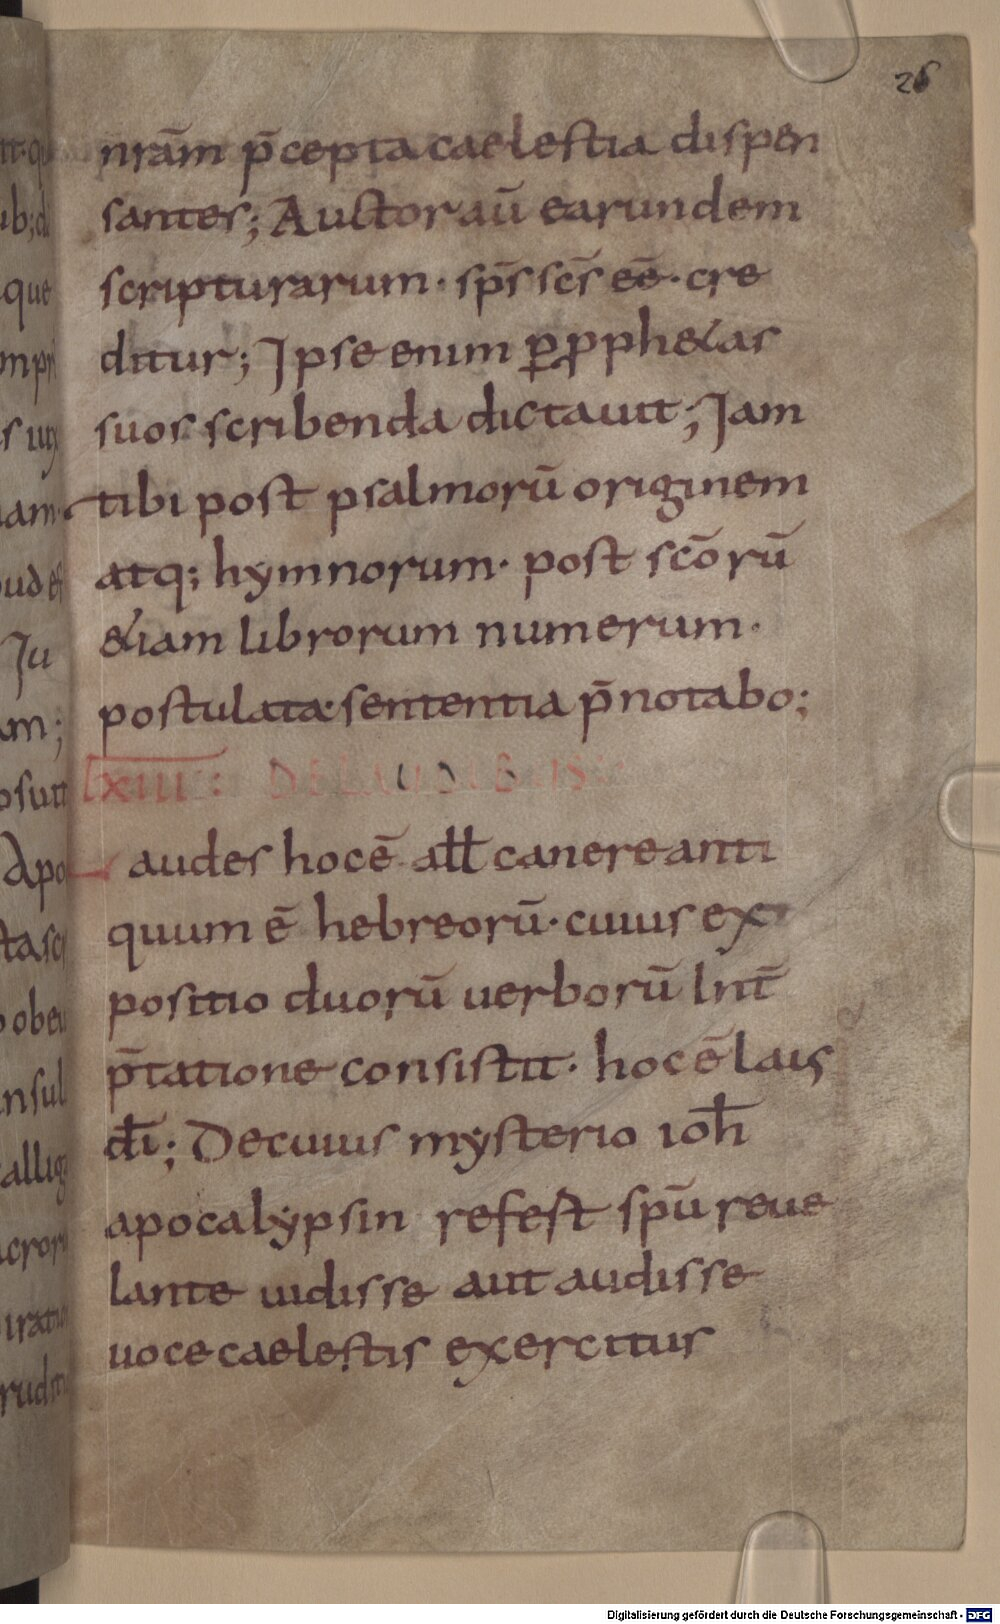 26
nrām p̄cepta caelestia dispen
santes; Auctor aū earundem
scripturarum· sp̄s sc̄s eē· cre
ditur; Ipse enim ꝑ ꝓphetas
suos scribenda dictauit; Jam
tibi post psalmorū originem
atq; hymnorum· post scōrū
etiam librorum numerum·
postulata· sententia p̄notabo;
lxiii: DE LAUDIBUS
Laudes hoc ē all̄ canere anti
quum ē hebreorū· cuius ex
positio duorū uerborū Int̄
p̄tatione consistit· hoc ē laus
dī; De cuius mysterio ioh̄
apocalypsin refest spū reue
lante uidisse aut audisse
uoce caelestis exercitus
Digitalisierung gefördert durch die Deutsche Forschungsgemeinschaft - DFG